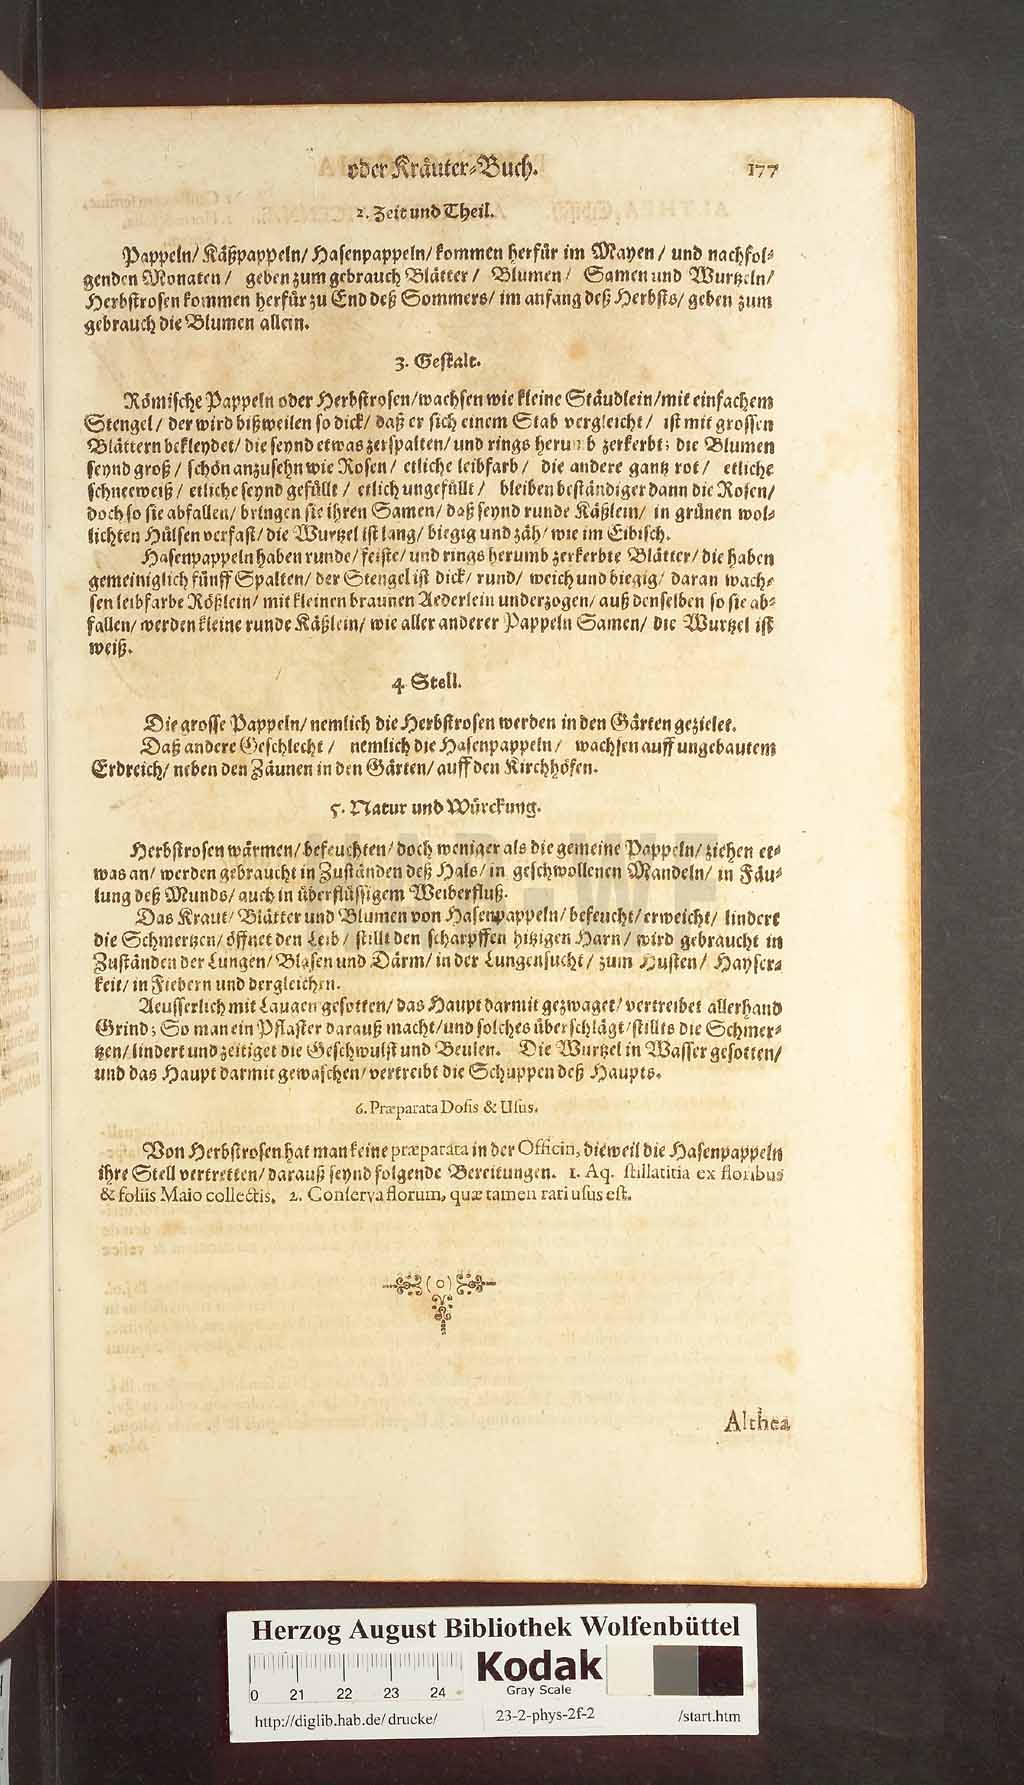 oder Kräuter-Buch. 177
2. Zeit und Theil.
Pappeln/ Käßpappeln/ Hasenpappeln/ kommen herfür im Mayen / und nachfol-
genden Monaten / geben zum gebrauch Blätter / Blumen / Samen und Wurtzeln/
Herbstrosen kommen herfür zu End deß Sommers/ im anfang deß Herbsts/ geben zum
gebrauch die Blumen allein.
3. Gestalt.
Römische Pappeln oder Herbstrosen/wachsen wie kleine Stäudlein/mit einfachem
Stengel / der wird bißweilen so dick/ daß er sich einem Stab vergleicht / ist mit grossen
Blättern bekleydet/ die seynd etwas zerspalten/ und rings herumb zerkerbt; die Blumen
seynd groß / schön anzusehn wie Rosen / etliche leibfarb / die andere gantz rot / etliche
schneeweiß / etliche seynd gefüllt / etlich ungefüllt / bleiben beständiger dann die Rosen/
doch so sie abfallen/ bringen sie ihren Samen/ daß seynd runde Käßlein/ in grünen wol-
lichten Hülsen verfast/ die Wurtzel ist lang/ biegig und zäh/ wie im Eibisch.
Hasenpappeln haben runde/ feiste/ und rings herumb zerkerbte Blätter/ die haben
gemeiniglich fünff Spalten/ der Stengel ist dick/ rund/ weich und biegig/ daran wach-
sen leibfarbe Rößlein/ mit kleinen braunen Aederlein underzogen/ auß denselben so sie ab-
fallen/ werden kleine runde Käßlein/ wie aller anderer Pappeln Samen/ die Wurtzel ist
weiß.
4. Stell.
Die grosse Pappeln/ nemlich die Herbstrosen werden in den Gärten gezielet.
Daß andere Geschlecht / nemlich die Hasenpappeln / wachsen auff ungebautem
Erdreich/ neben den Zäunen in den Gärten/ auff den Kirchhöfen.
5. Natur und Würckung.
Herbstrosen wärmen/ befeuchten/ doch weniger als die gemeine Pappeln/ ziehen et-
was an/ werden gebraucht in Zuständen deß Hals/ in geschwollenen Mandeln/ in Fäu-
lung deß Munds/ auch in überflüssigem Weiberfluß.
Das Kraut/ Blätter und Blumen von Hasenpappeln/ befeucht/ erweicht/ lindert
die Schmertzen/ öffnet den Leib/ stillt den scharpffen hitzigen Harn/ wird gebraucht in
Zuständen der Lungen/ Blasen und Därm/ in der Lungensucht/ zum Husten/ Hayser-
keit/ in Fiebern und dergleichen.
Aeusserlich mit Laugen gesotten/ das Haupt darmit gezwaget/ vertreibet allerhand
Grind; So man ein Pflaster darauß macht/und solches überschlägt/stillts die Schmer-
tzen/ lindert und zeitiget die Geschwulst und Beulen. Die Wurtzel in Wasser gesotten/
und das Haupt darmit gewaschen/ vertreibt die Schuppen deß Haupts.
6. Præparata Dosis & Usus.
Von Herbstrosen hat man keine præparata in der Officin, dieweil die Hasenpappeln
ihre Stell vertretten/ darauß seynd folgende Bereitungen. 1. Aq. stillatitia ex floribus
& foliis Maio collectis. 2. Conserva florum, quæ tamen rari usus est.
(o)
Althea
Herzog August Bibliothek Wolfenbüttel
Kodak
Gray Scale
0 21 22 23 24
http://diglib.hab.de/drucke/ 23-2-phys-2f-2 /start.htm